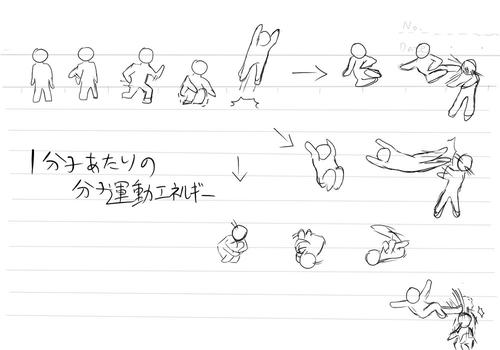 No.
Date
1分子あたりの
分子運動エネルギー